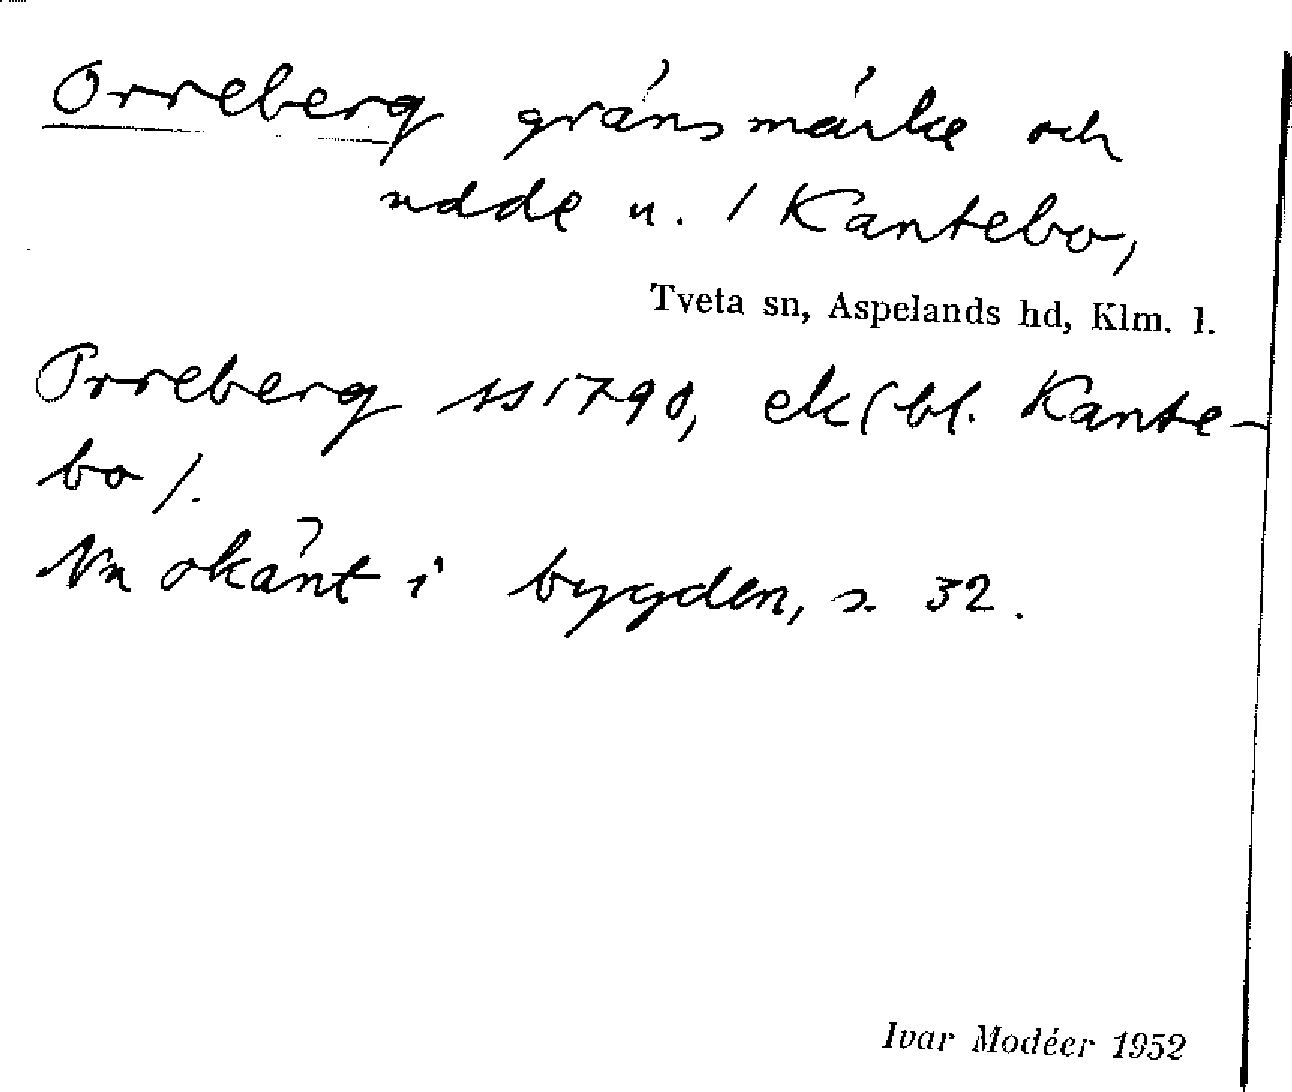 Orreberg gränsmärke och
udde u. / Kantebo,
Tveta sn, Aspelands hd, Klm. l.
Orreberg ss 1790, ek (bl. Kante-
bo /.
Nn okänt i bygden, s. 32.
Ivar Modéer 1952